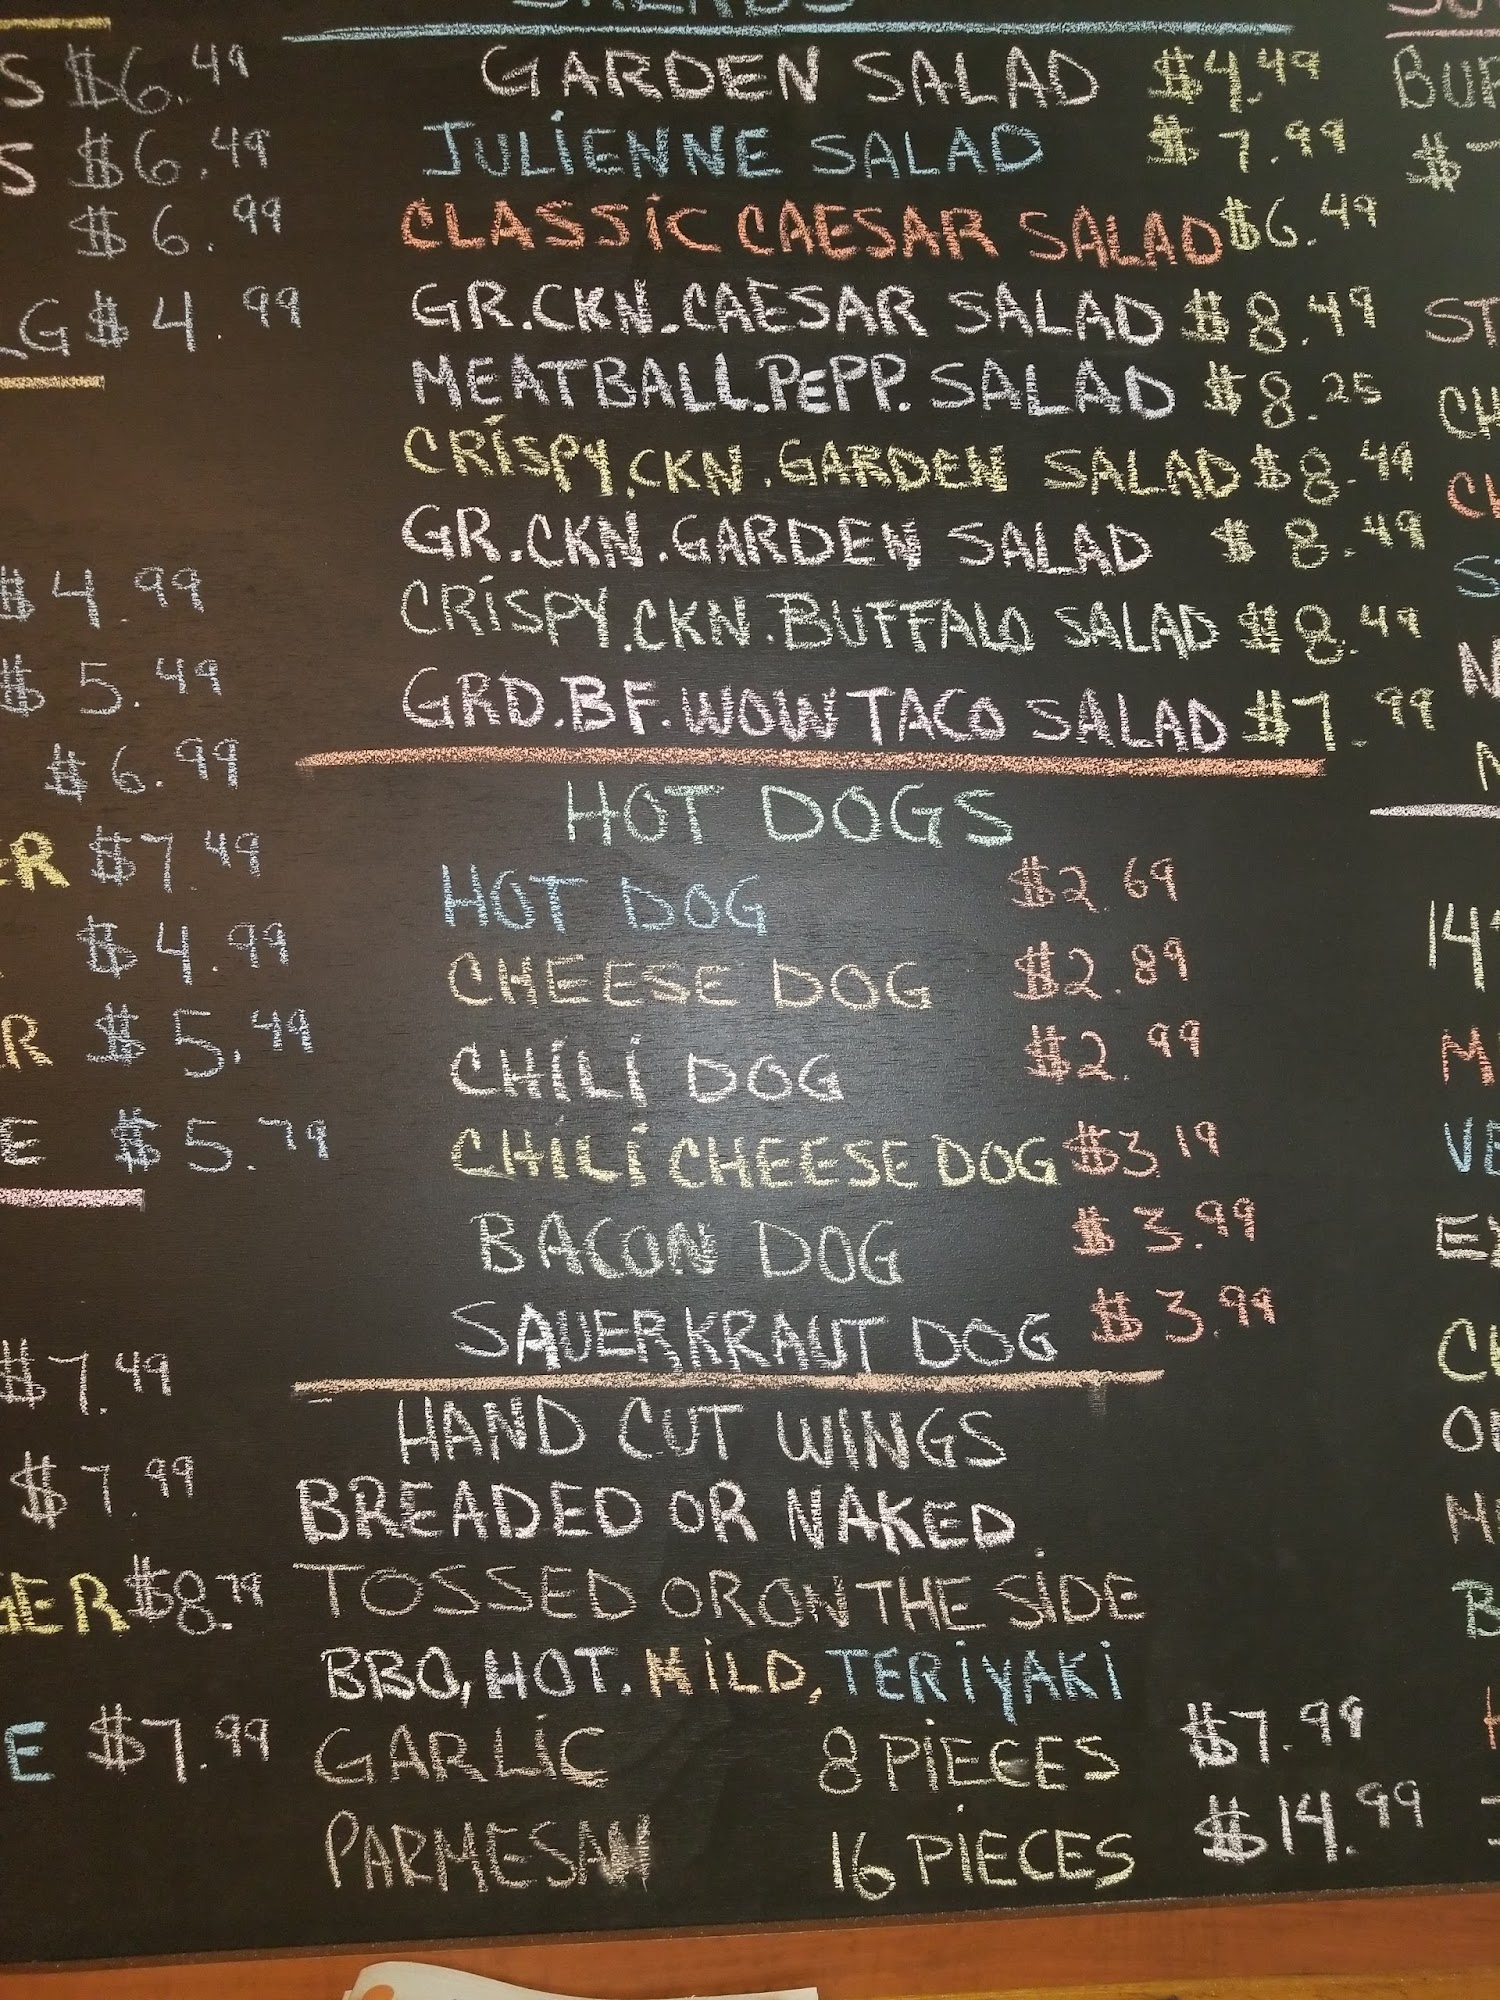 SALADS
GARDEN SALAD $4.49
JULIENNE SALAD $7.99
CLASSIC CAESAR SALAD $6.49
GR.CKN.CAESAR SALAD $8.49
MEATBALL.PEPP. SALAD $8.25
CRISPY.CKN.GARDEN SALAD $8.49
GR.CKN.GARDEN SALAD $8.49
CRISPY.CKN.BUFFALO SALAD $8.49
GRD.BF.WOW TACO SALAD $7.99
HOT DOGS
HOT DOG $2.69
CHEESE DOG $2.89
CHILI DOG $2.99
CHILI CHEESE DOG $3.19
BACON DOG $3.99
SAUERKRAUT DOG $3.99
HAND CUT WINGS
BREADED OR NAKED
TOSSED OR ON THE SIDE
BBQ, HOT. MILD, TERIYAKI
GARLIC 8 PIECES $7.99
PARMESAN 16 PIECES $14.99
S $6.49
S $6.49
$6.99
LG $4.99
$4.99
$5.49
$6.99
ER $7.49
$4.99
R $5.49
E $5.79
$7.49
$7.99
GER $8.79
E $7.99